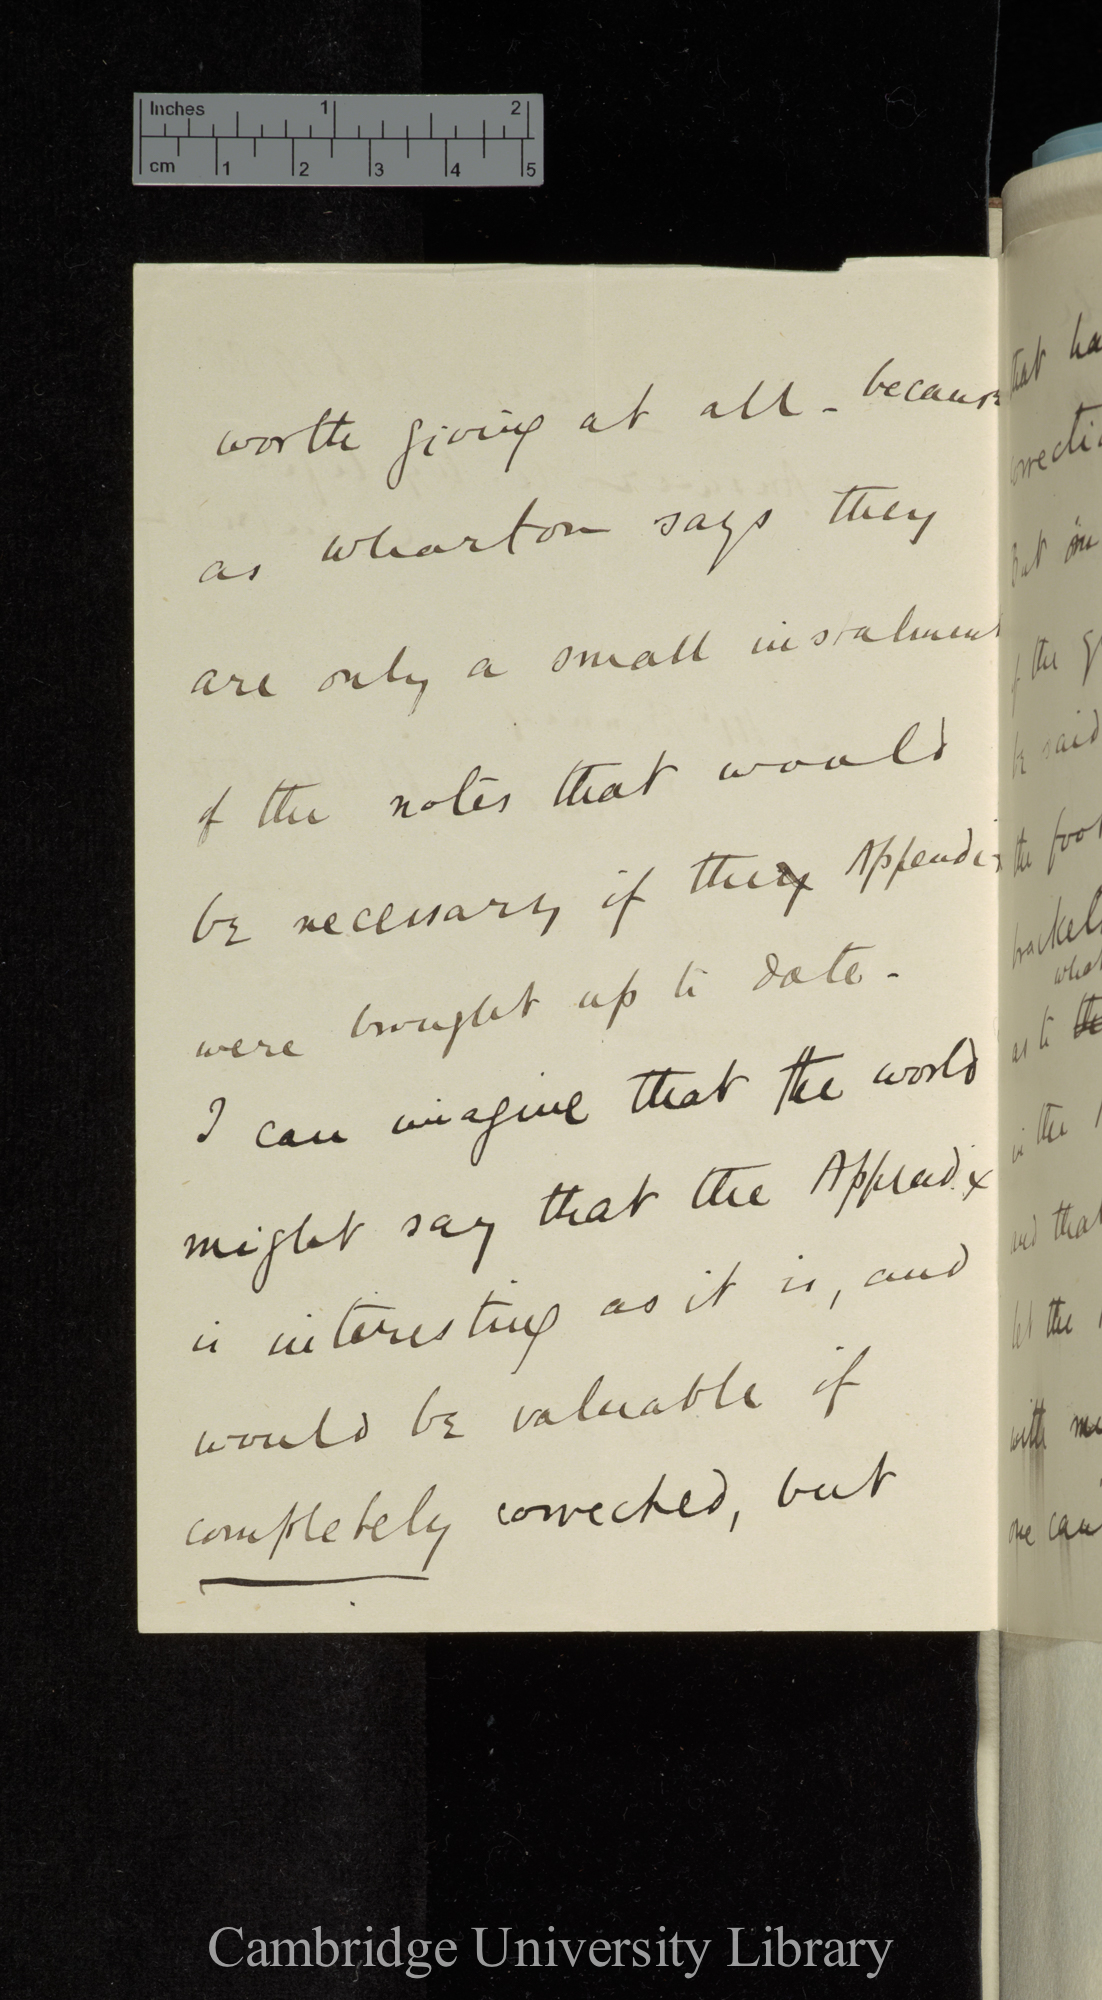 Inches 1 2
cm 1 2 3 4 5
worth giving at all - because
as Wharton says they
are only a small instalment
of the notes that would
be necessary if they Appendix
were brought up to date -
I can imagine that the world
might say that the Appendix
is interesting as it is, and
would be valuable if
completely corrected, but
that
But
the
said
the
what
as to the
in the
and that
let the
with
one can
Cambridge University Library